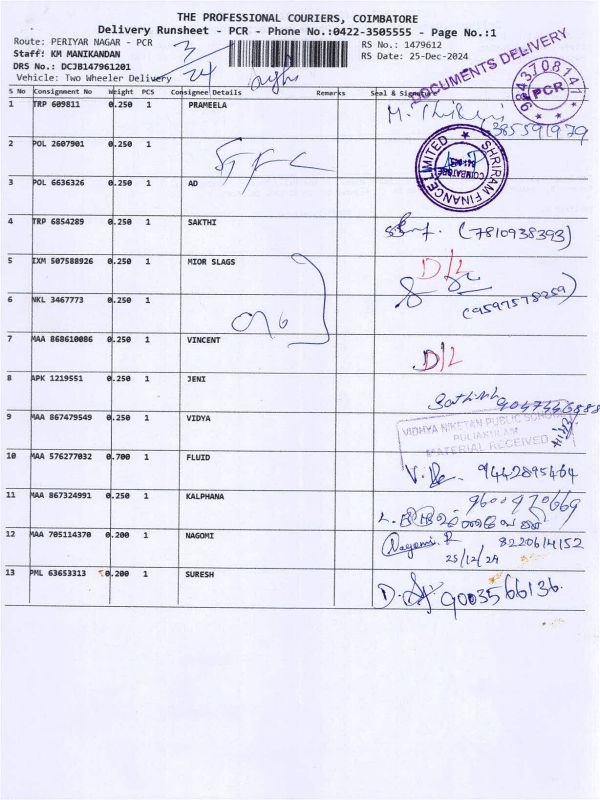 THE PROFESSIONAL COURIERS, COIMBATORE
Delivery Runsheet - PCR - Phone No.:0422-3505555 - Page No.:1
Route: PERIYAR NAGAR - PCR
RS No.: 1479612
Staff: KM MANIKANDAN
RS Date: 25-Dec-2024
DRS No.: DCJB147961201
Vehicle: Two Wheeler Delivery
3/24
DOCUMENTS DELIVERY
9843708141
PCR
S No Consignment No Weight PCS Consignee Details Remarks Seal & Signature
1 TRP 609811 0.250 1 PRAMEELA
2 POL 2607901 0.250 1
SHRIRAM FINANCE LIMITED
COIMBATORE
3 POL 6636326 0.250 1 AD
4 TRP 6854289 0.250 1 SAKTHI (7810938393)
5 IXM 507588926 0.250 1 MIOR SLAGS D/L
6 NKL 3467773 0.250 1 (9597578259)
7 MAA 868610086 0.250 1 VINCENT D/L
8 APK 1219551 0.250 1 JENI
9 MAA 867479549 0.250 1 VIDYA
VIDHYA NIKETAN PUBLIC SCHOOL
PULIAKULAM
MATERIAL RECEIVED
10 MAA 576277032 0.700 1 FLUID 9442895464
11 MAA 867324991 0.250 1 KALPHANA 9600920669
12 MAA 705114370 0.200 1 NAGOMI Nagomi.R 8220614152
25/12/24
13 PML 63653313 0.200 1 SURESH 9003566136